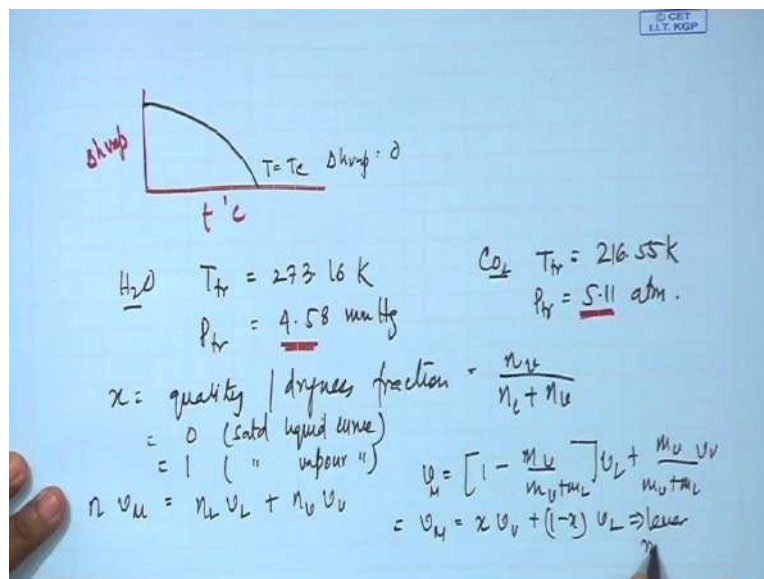 © CET
I.I.T. KGP
Δhvap
T = Tc Δhvap = 0
t °c
H₂O Ttr = 273.16 K
Ptr = 4.58 mm Hg
CO₂ Ttr = 216.55 K
Ptr = 5.11 atm.
x = quality / dryness fraction = nv / (nL + nv)
= 0 (satd liquid curve)
= 1 ( " vapour ")
n vM = nL vL + nv vv
vM = [1 - mv / (mv + mL)] vL + mv vv / (mv + mL)
= vM = x vv + (1-x) vL ⇒ lever